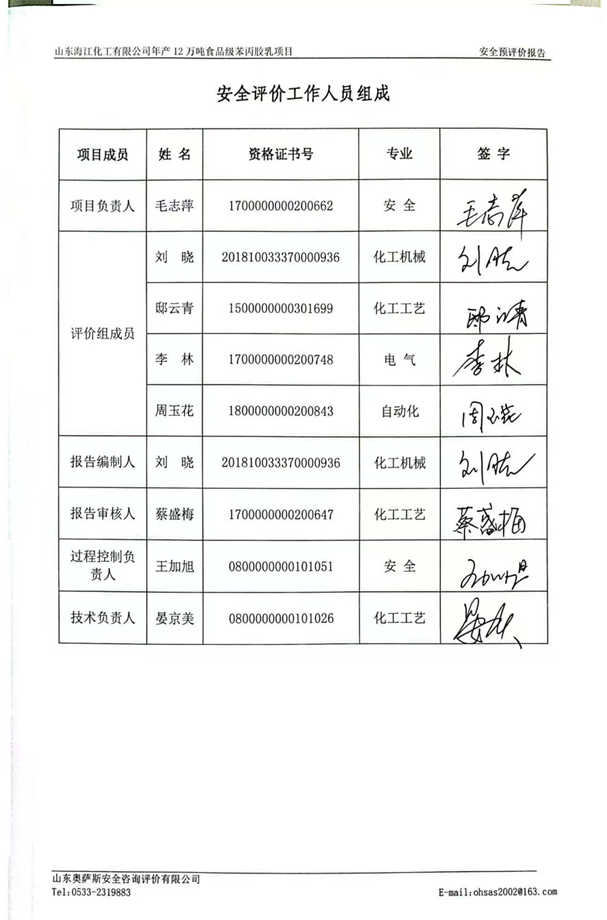 山东海江化工有限公司年产12万吨食品级苯丙胶乳项目 安全预评价报告
安全评价工作人员组成
项目成员 姓 名 资格证书号 专业 签 字
项目负责人 毛志萍 1700000000200662 安 全 毛志萍
评价组成员 刘 晓 201810033370000936 化工机械 刘晓
邸云青 1500000000301699 化工工艺 邸云青
李 林 1700000000200748 电 气 李林
周玉花 1800000000200843 自动化 周玉花
报告编制人 刘 晓 201810033370000936 化工机械 刘晓
报告审核人 蔡盛梅 1700000000200647 化工工艺 蔡盛梅
过程控制负
责人 王加旭 0800000000101051 安 全
技术负责人 晏京美 0800000000101026 化工工艺
山东奥萨斯安全咨询评价有限公司
Tel:0533-2319883 E-mail:ohsas2002@163.com